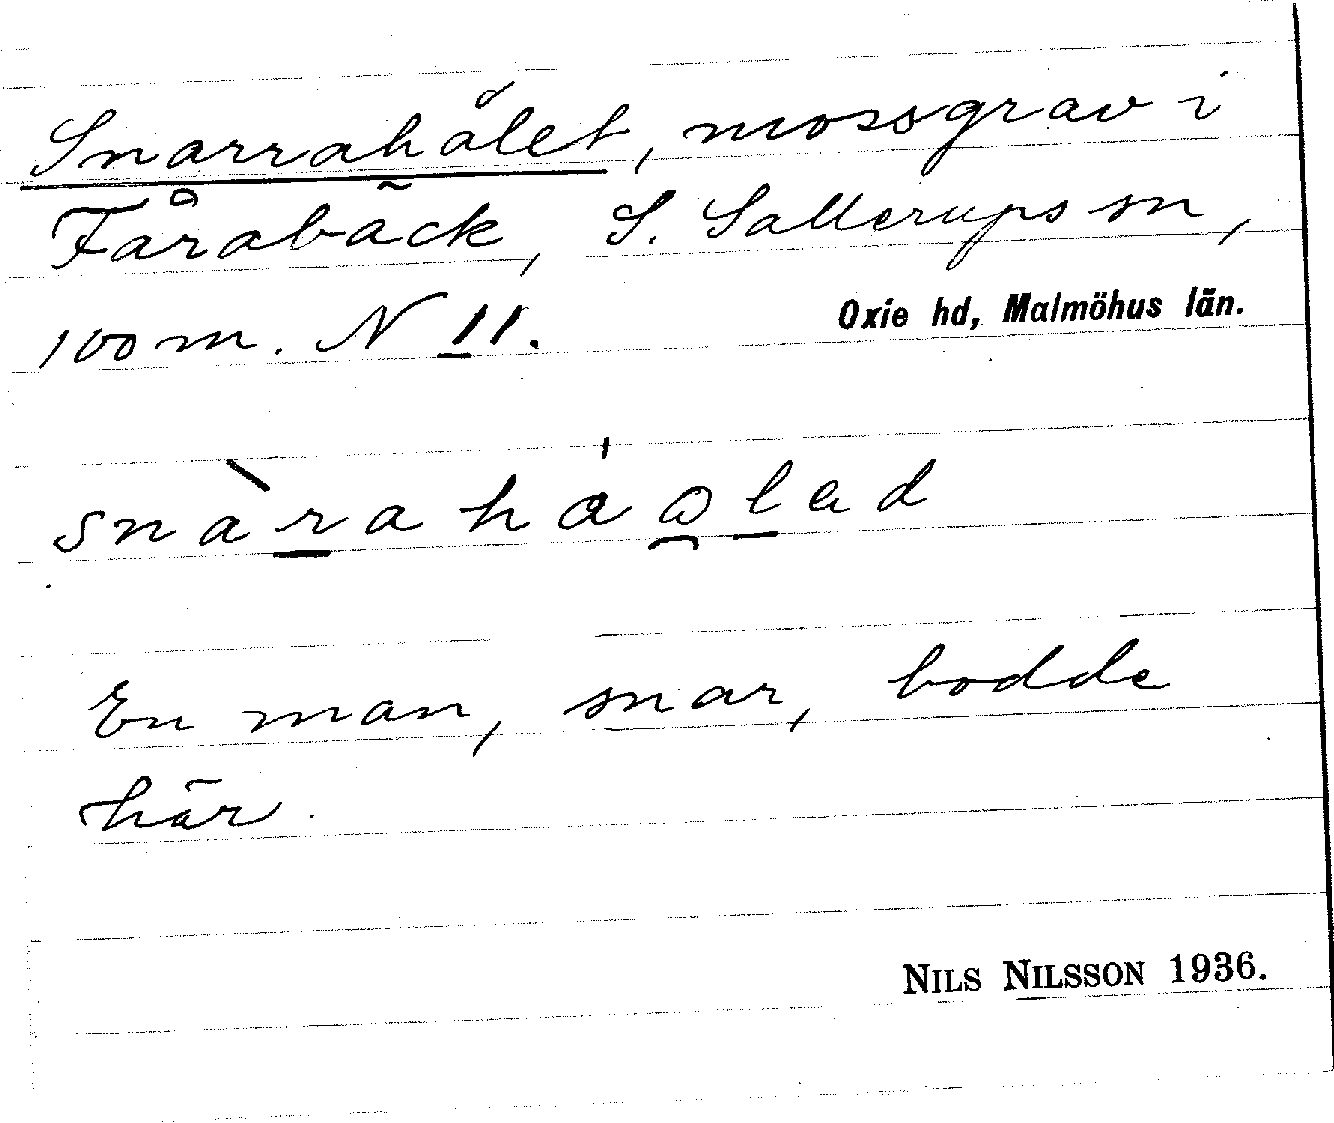 Snarrahålet, mossgrav i
Fårabäck, S. Sallerups sn,
100 m. N 11.
Oxie hd, Malmöhus län.
snàraháɷlad
En man, snar, bodde
här.
NILS NILSSON 1936.